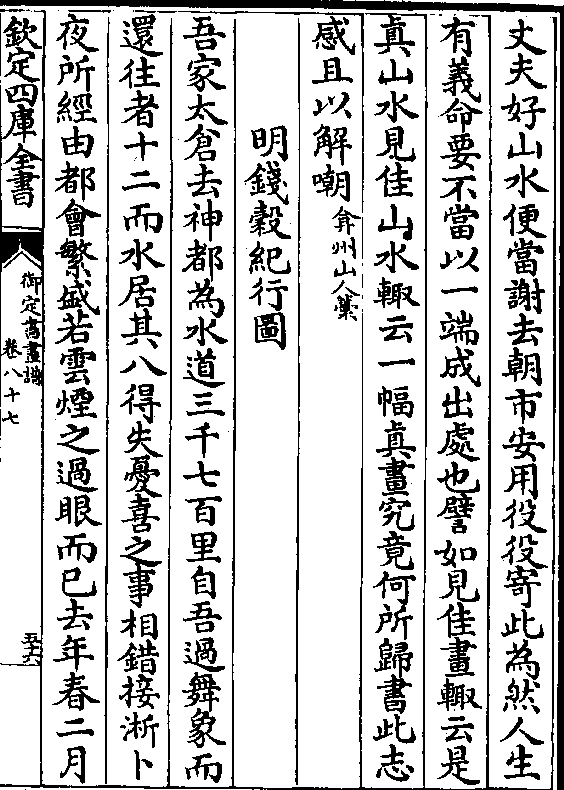 丈夫好山水便當謝去朝市安用役役寄此為然人生
有義命要不當以一端成出處也譬如見佳畫輙云是
真山水見佳山水輙云一幅真畫究竟何所歸書此志
感且以解嘲弇州山人藁
明錢穀紀行圖
吾家太倉去神都為水道三千七百里自吾過舞象而
還往者十二而水居其八得失憂喜之事相錯接淅卜
夜所經由都會繁盛若雲煙之過眼而已去年春二月
欽定四庫全書
御定書畫譜
卷八十七
五六